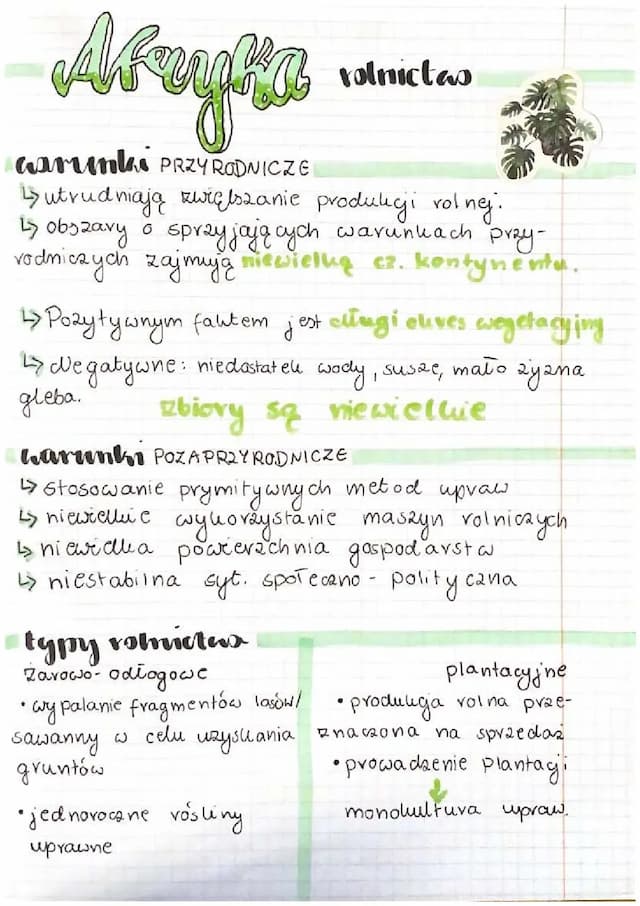 Afryka rolnictwo
warunki PRZYRODNICZE
↳ utrudniają zwiększanie produkcji rolnej.
↳ obszary o sprzyjających warunkach przy-
rodniczych zajmują niewielką cz. kontynentu.
↳ Pozytywnym faktem jest długi okres wegetacyjny
↳ Negatywne: niedostatek wody, susze, mało żyzna
gleba.
zbiory są niewielkie
warunki POZAPRZYRODNICZE
↳ stosowanie prymitywnych metod upraw
↳ niewielkie wykorzystanie maszyn rolniczych
↳ niewielka powierzchnia gospodarstw
↳ niestabilna syt. społeczno - polityczna
typy rolnictwa
żarowo-odłogowe
• wypalanie fragmentów lasów/
sawanny w celu uzyskania
gruntów
• jednoroczne rośliny
uprawne
plantacyjne
• produkcja rolna prze-
znaczona na sprzedaż
• prowadzenie plantacji
↓
monokultura upraw.